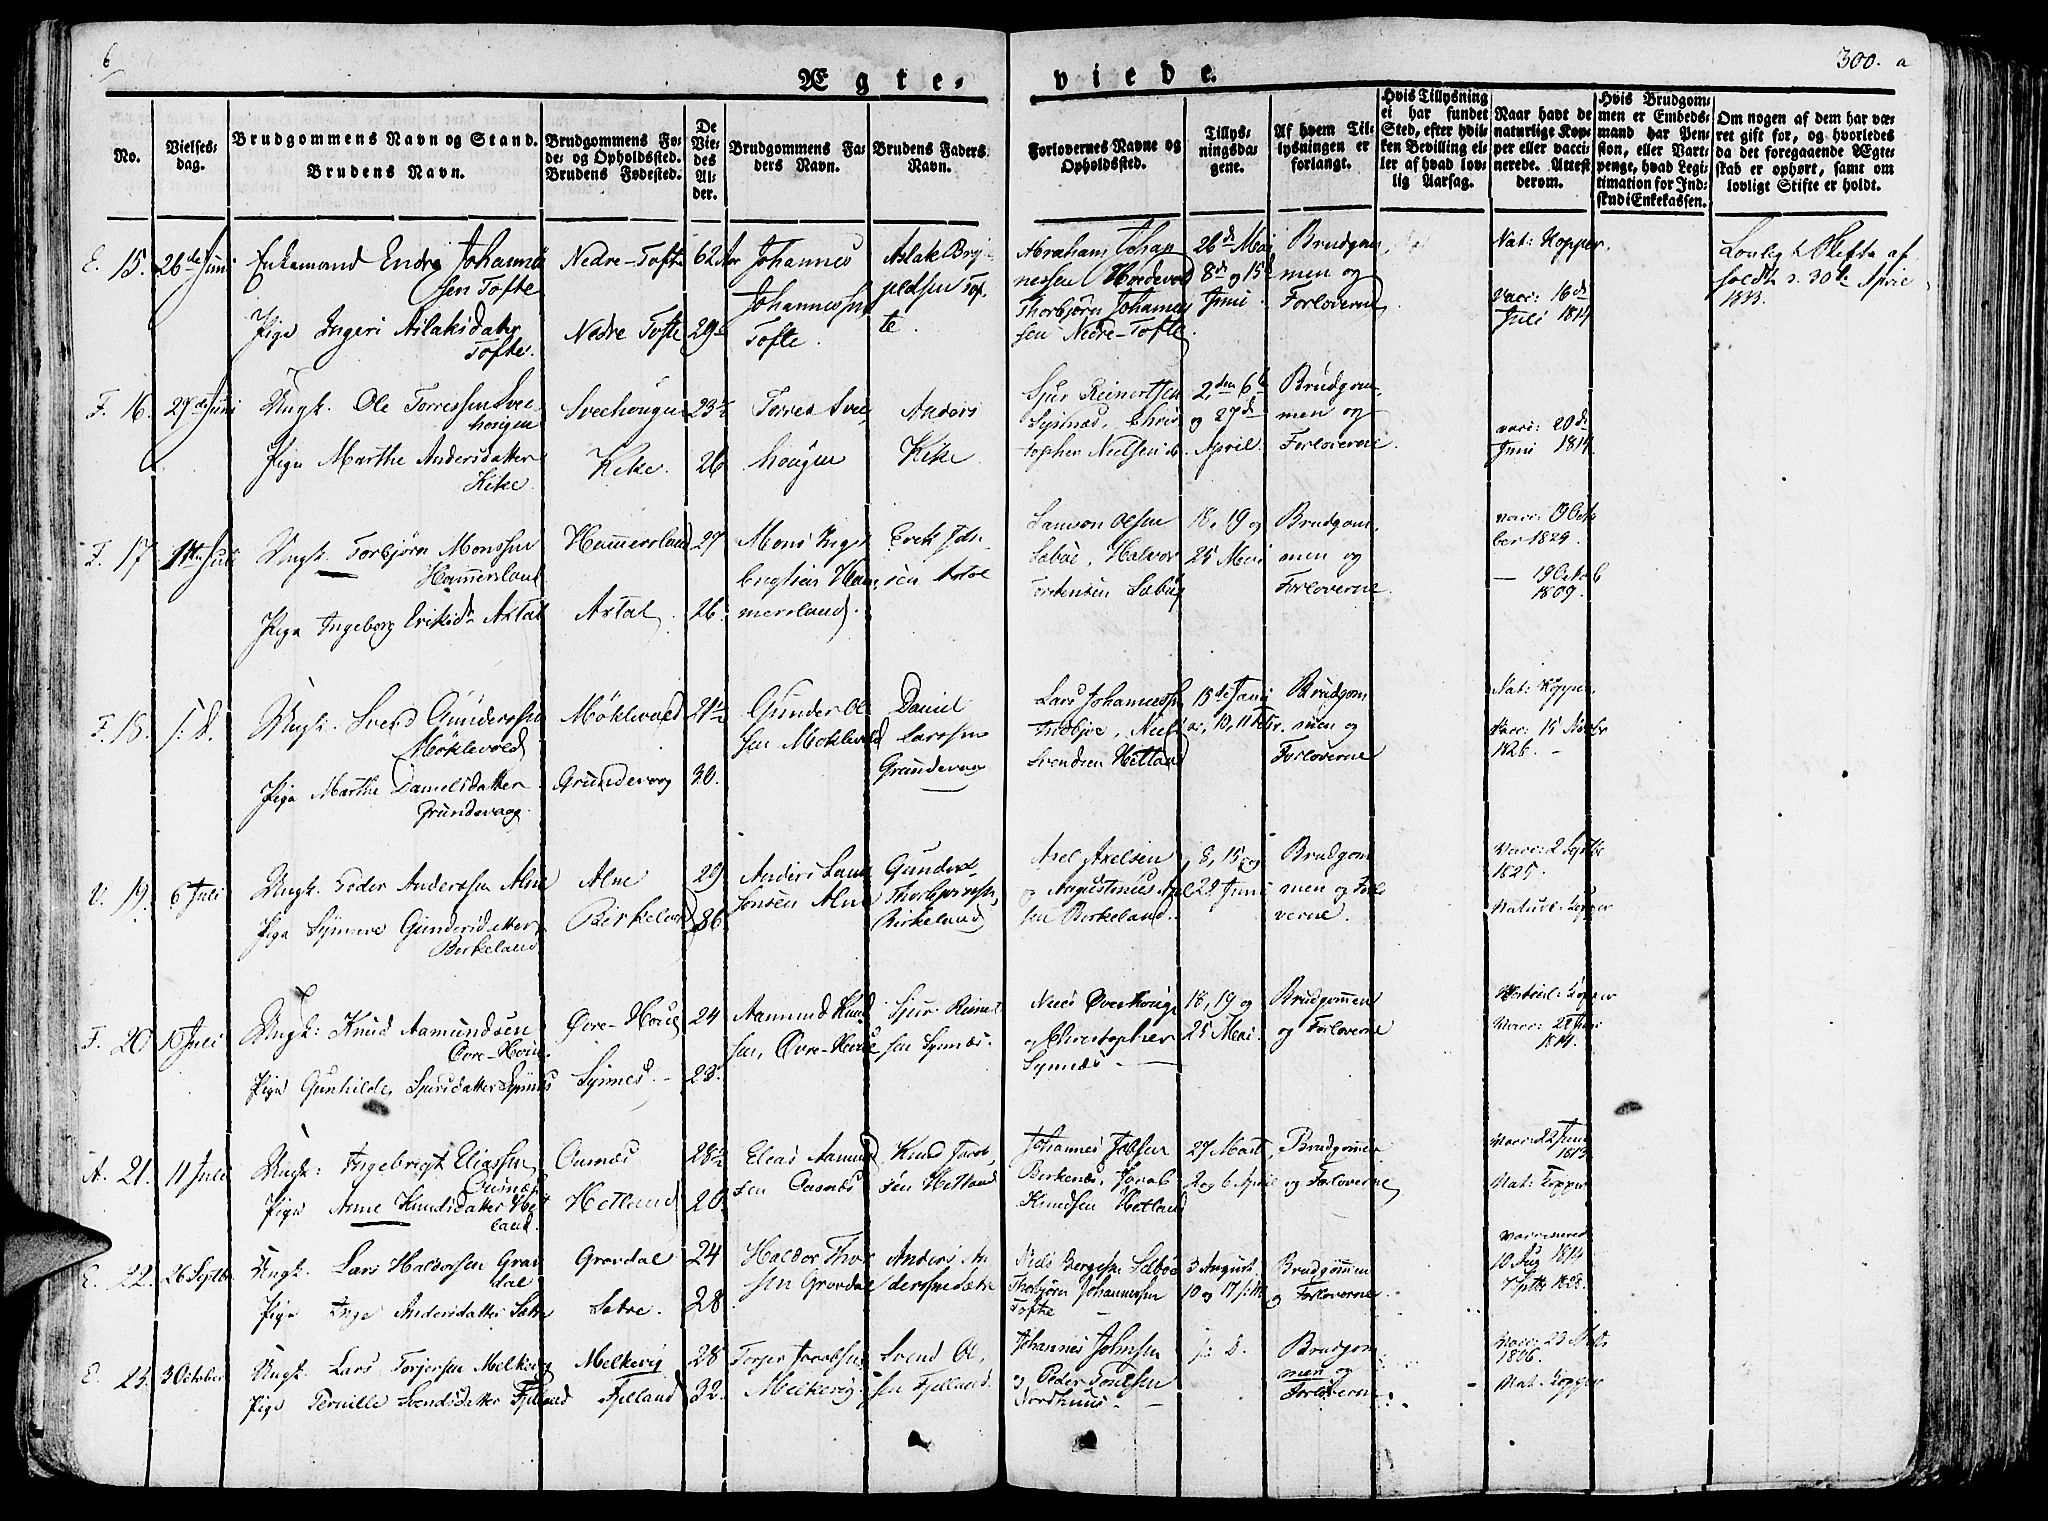 6
300. a
Ægte-
viede.
No.
Vielses-
dag.
Brudgommens Navn og Stand.
Brudens Navn.
Brudgommens Fø-
de- og Opholdssted.
Brudens Fødested.
De
Vie-
des
Al-
der.
Brudgommens Fa-
ders Navn.
Brudens Faders
Navn.
Forlovernes Navne og
Opholdssted.
Tillys-
ningsda-
gene.
Af hvem Til-
lysningen er
forlangt.
Hvis Tillysning
ei har fundet
Sted, efter hvil-
ken Bevilling el-
ler af hvad lov-
lig Aarsag.
Naar havt de
naturlige Kop-
per eller vacci-
nerede. Attest
derom.
Hvis Brudgom-
men er Embeds-
mand har Pen-
sion, eller Vart-
penge, hvad Legi-
timation for Ind-
skud i Enkekassen.
Om nogen af dem har væ-
ret gift før, og hvorledes
da det foregaaende Ægte-
skab er ophørt, samt om
lovligt Skifte er holdt.
E. 15. 26de Juni
Enkemand Endre Johannes
sen Tofte
Pige Ingeri Aslaksdatter
Tofte.
Nedre-Tofte
Nedre Tofte
62 Aar
29
Johannes
Johannessen
Tofte.
Aslak Bry-
Tof-
te.
Abraham Johan
nessen Hordevold
Thorbjørn Johannes
sen Nedre-Tofte
26de Mai
8de og 15de
Juni.
Brudgom
men og
Forloverne
Nat: Kopper.
Vacc: 16de
Juli 1814
Lovlig Skifte af
holdt d. 30te April
1833.
F. 16. 27de Juni
Ungk. Ole Torressen Svee
hougen
Pige Marthe Andersdatter
Kike
Sveehougen
Kike.
23½
26
Torres Svee
hougen
Anders
Kike
Sjur Reinertsen
Synnæs, Chris
topher Nielsen
2den 6te
og 27de
April.
Brudgom
men og
Forloverne
vacc: 20de
Juni 1814.
F. 17 1ste Juli
Ungk. Torbjørn Monssen
Hammersland
Pige Ingeborg Eriksd. Axtal
Hammersland
Axtal
27
26.
Mons Inge
brigtsen Ham
mersland.
Erik
sen
Samson Olsen
Sæbøe, Halvor
Torstensen Sæbøe
18, 19 og
25 Mai
Brudgom
men og
Forloverne.
vacc: 9 Octo
ber 1829.
— 19 Octob
1809.
F. 18. s: D.
Ungk. Svend Gunderssen
Møklevold
Pige Marthe Danielsdatter
Grundevaag
Møklevold
Grundevaag
21½
30.
Gunder Ol
sen Moklevold
Daniel
Larssen
Grundevaag
Lars Johannessen
Niels
Svendsen Hetland
15de Juni
Brudgom
men og
Forloverne
Nat: Kopper
Vacc: 15 Novbr
1826.
V. 19. 6 Juli
Ungk. Peder Anderssen Alne
Pige Synneve Gundersdatter
Birkeland
Alne
Birkeland
29
36.
Anders Lau
sen Alne
Gunder
Thorbjørnsen
Birkeland
Axel Axelsen
og Augustinus Axel
sen Birkeland.
8, 15 og
22 Juni
Brudgom
men og Forlo
verne.
Vacc: 2 Septbr
1825.
Naturl. Kopper
F. 20 10 Juli
Ungk: Knud Aamundsen
Øvre-Hovie
Pige Gunhilde Sjursdatter Synnes
Øvre-Hovie
Synnes.
24
23.
Aamund Knud
sen, Øvre-Hovie
Sjur Reinert
sen Synnæs.
Niels Øvrehovie
og Christopher
Synnæs
18, 19 og
25 Mai.
Brudgommen
og Forloverne
Naturl: Kopper
Vacc: 22 Juni
1814.
A. 21. 11 Juli
Ungk: Ingebrigt Eliassen
Ousnæs
Pige Anne Knudsdatter Het
land.
Ousnæs
Hetland
28½
20
Elias Aamund
sen Ousnæs
Knud Jacob
sen Hetland
Johannes Jacobsen
Birkenæs, Jacob
Knudsen Hetland
27 Marts
2 og 6 April
Brudgommen
og Forloverne
Vacc: 22 Juni
1813.
Nat: Kopper
E. 22. 26 Septbr
Ungk. Lars Haldorsen Grov
dal
Pige Inge Andersdatter Sætre
Grovdal
Sætre.
24
28
Haldor Thor
sen Grovdal
Anders An
derssen Sætre
Niels Bergesen Sæbøe
Thorbjørn Johannessen
Tofte
3 August
10 og 17
Brudgommen
og Forloverne
vaccineret
10 Aug 1814
7 Septbr 1828.
E. 23. 3 October
Ungk. Lars Torjersen Melkevig
Pige Pernille Svendsdatter Fjelland
Melkevig
Fjelland
28
32.
Torjer Jacobsen
Melkevig
Svend Ol
sen Fjelland.
Johannes Johnsen
og Peder Tomesen
Nordhuus
s: D.
Brudgom
men og
Forloverne
Vacc: 23
1806.
Nat: Kopper